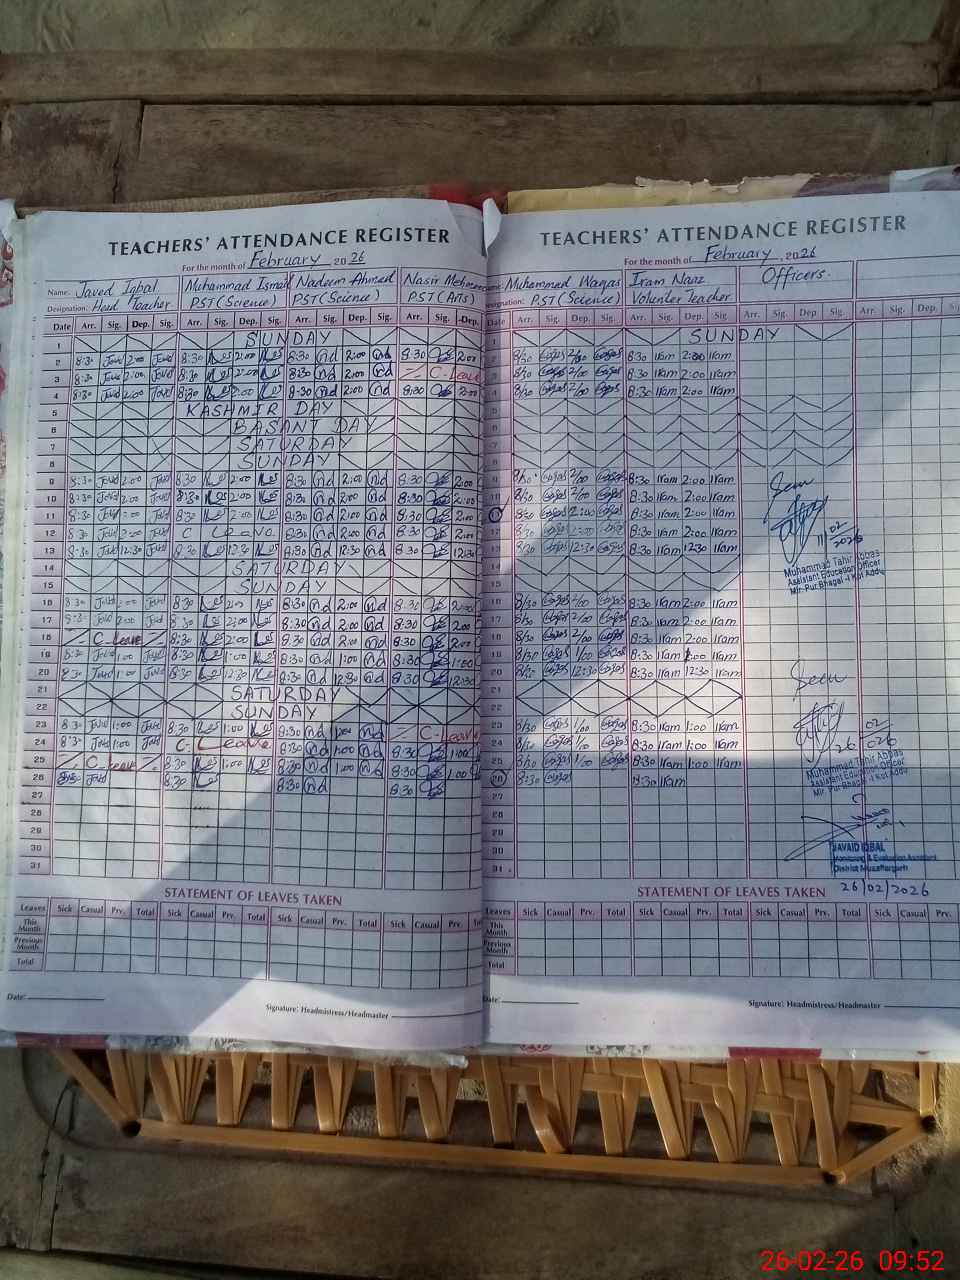 TEACHERS' ATTENDANCE REGISTER
For the month of February, 2026
Name: Javed Iqbal Muhammad Ismail Nadeem Ahmed Nasir Mehmood
Designation: Head Teacher PST (Science) PST (Science) PST (Arts)
Date Arr. Sig. Dep. Sig. Arr. Sig. Dep. Sig. Arr. Sig. Dep. Sig. Arr. Sig. Dep.
1 SUNDAY
2 8:30 Javed 2:00 Javed 8:30 2:00 8:30 nd 2:00 nd 8:30 2:00
3 8:30 Javed 2:00 Javed 8:30 2:00 8:30 nd 2:00 nd C-Leave
4 8:30 Javed 2:00 Javed 8:30 2:00 8:30 nd 2:00 nd 8:30 2:00
5 KASHMIR DAY
6 BASANT DAY
7 SATURDAY
8 SUNDAY
9 8:30 Javed 2:00 Javed 8:30 2:00 8:30 nd 2:00 nd 8:30 2:00
10 8:30 Javed 2:00 Javed 8:30 2:00 8:30 nd 2:00 nd 8:30 2:00
11 8:30 Javed 2:00 Javed 8:30 2:00 8:30 nd 2:00 nd 8:30 2:00
12 8:30 Javed 2:00 Javed C Leave 8:30 nd 2:00 nd 8:30 2:00
13 8:30 Javed 12:30 Javed 8:30 12:30 8:30 nd 12:30 nd 8:30 12:30
14 SATURDAY
15 SUNDAY
16 8:30 Javed 2:00 Javed 8:30 2:00 8:30 nd 2:00 nd 8:30 2:00
17 8:30 Javed 2:00 Javed 8:30 2:00 8:30 nd 2:00 nd 8:30 2:00
18 C-Leave 8:30 2:00 8:30 nd 2:00 nd 8:30 2:00
19 8:30 Javed 1:00 Javed 8:30 1:00 8:30 nd 1:00 nd 8:30 1:00
20 8:30 Javed 1:00 Javed 8:30 12:30 8:30 nd 12:30 nd 8:30 12:30
21 SATURDAY
22 SUNDAY
23 8:30 Javed 1:00 Javed 8:30 1:00 8:30 nd 1:00 nd C-Leave
24 8:30 Javed 1:00 Javed C-Leave 8:30 nd 1:00 nd 8:30 1:00
25 C-Leave 8:30 1:00 8:30 nd 1:00 nd 8:30 1:00
26 8:30 Javed 8:30 8:30 nd 8:30
27
28
29
30
31
STATEMENT OF LEAVES TAKEN
Leaves Sick Casual Prv. Total Sick Casual Prv. Total Sick Casual Prv. Total Sick Casual Prv.
This Month
Previous Month
Total
Date:
Signature: Headmistress/Headmaster
TEACHERS' ATTENDANCE REGISTER
For the month of February, 2026
Muhammad Waqas Iram Naaz Officers.
PST (Science) Volunteer Teacher
Date Arr. Sig. Dep. Sig. Arr. Sig. Dep. Sig. Arr. Sig. Dep. Sig. Arr. Sig. Dep.
1 SUNDAY
2 8/30 2/00 8:30 Iram 2:00 Iram
3 8/30 2/00 8:30 Iram 2:00 Iram
4 8/30 2/00 8:30 Iram 2:00 Iram
5
6
7
8
9 8/30 2/00 8:30 Iram 2:00 Iram Seen
10 8/30 2/00 8:30 Iram 2:00 Iram
11 8/30 2:00 8:30 Iram 2:00 Iram
12 8/30 2:00 8:30 Iram 2:00 Iram
13 8/30 12:30 8:30 Iram 12:30 Iram
11/02/2026
Muhammad Tahir Abbas
Assistant Education Officer
Mir Pur Bhagal -I Kot Addu
14
15
16 8/30 2/00 8:30 Iram 2:00 Iram
17 8/30 2/00 8:30 Iram 2:00 Iram
18 8/30 2/00 8:30 Iram 2:00 Iram
19 8/30 1/00 8:30 Iram 1:00 Iram
20 8/30 12:30 8:30 Iram 12:30 Iram
Seen
21
22
23 8/30 1/00 8:30 Iram 1:00 Iram
24 8/30 1/00 8:30 Iram 1:00 Iram
25 8/30 1/00 8:30 Iram 1:00 Iram
26 8:30 8:30 Iram
26/02/026
Muhammad Tahir Abbas
Assistant Education Officer
Mir Pur Bhagal -I Kot Addu
27
28
29
30
31
JAVAID IQBAL
Monitoring & Evaluation Assistant
District Muzaffargarh
26/02/2026
STATEMENT OF LEAVES TAKEN
Leaves Sick Casual Prv. Total Sick Casual Prv. Total Sick Casual Prv. Total Sick Casual Prv.
This Month
Previous Month
Total
Date:
Signature: Headmistress/Headmaster
26-02-26 09:52